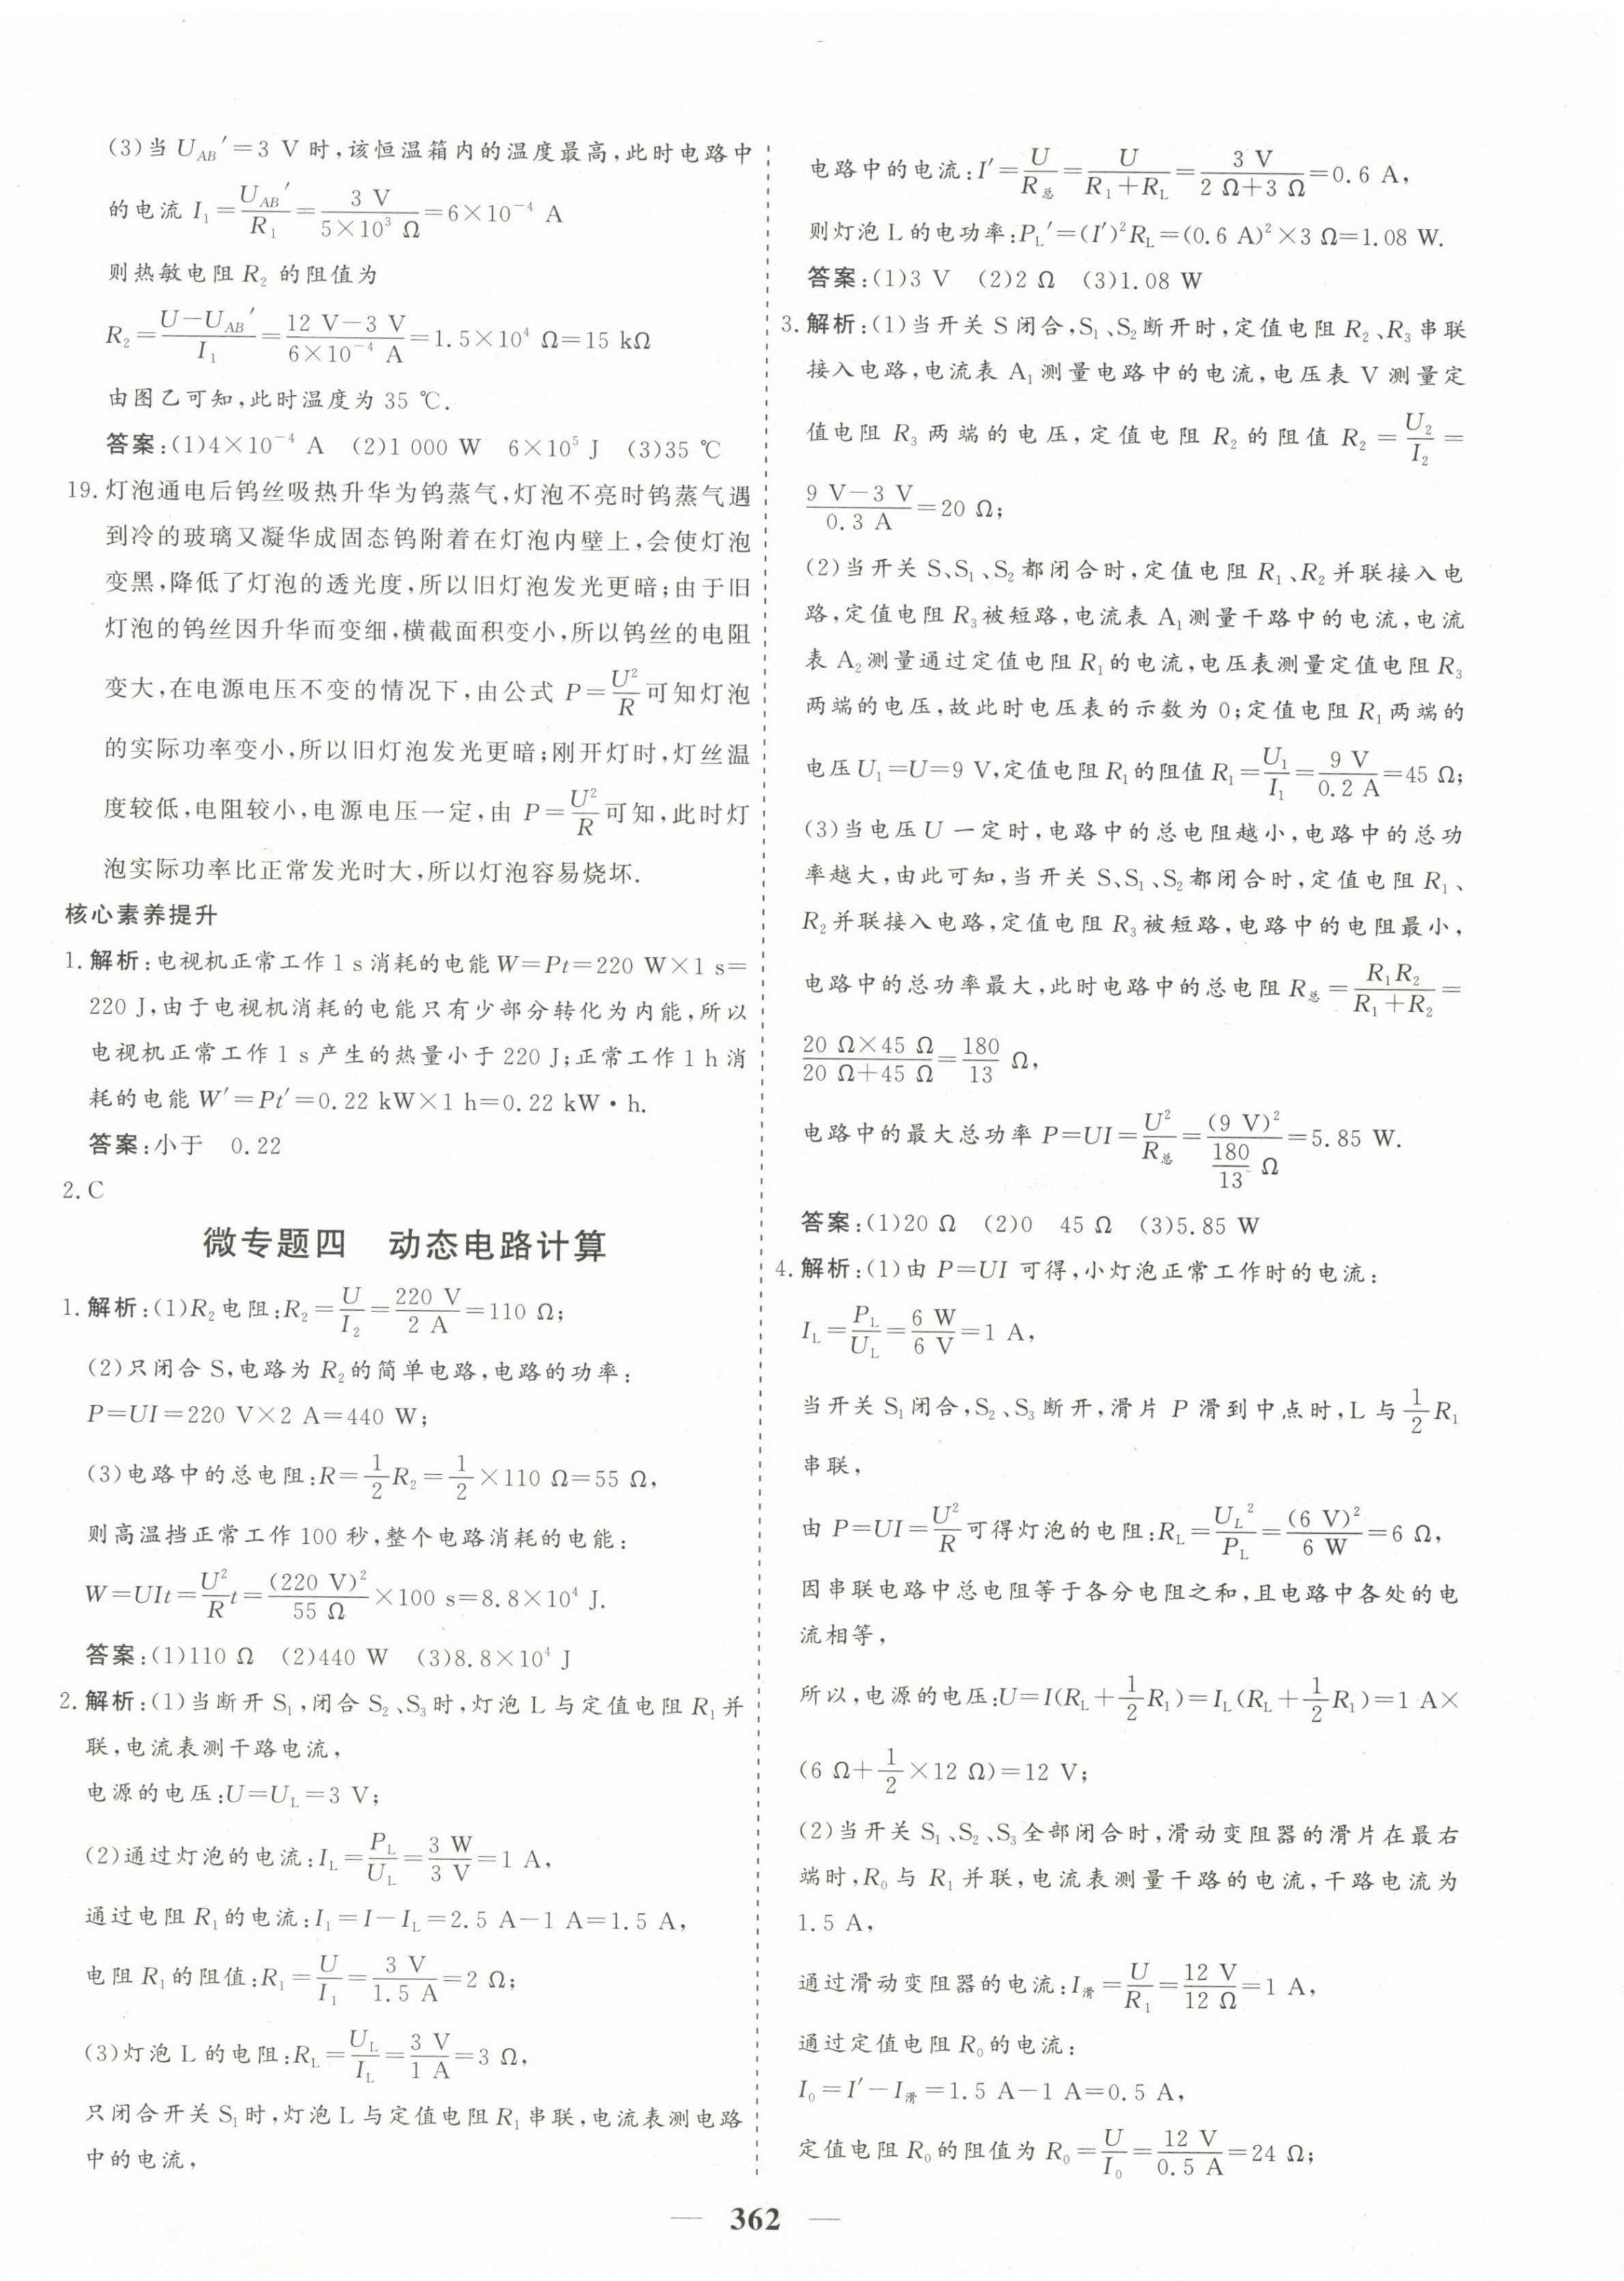 (3)当 U_AB′=3 V 时,该恒温箱内的温度最高,此时电路中
的电流 I₁=U_AB′/R₁=3 V/(5×10³ Ω)=6×10⁻⁴ A
则热敏电阻 R₂ 的阻值为
R₂=(U-U_AB′)/I₁=(12 V-3 V)/(6×10⁻⁴ A)=1.5×10⁴ Ω=15 kΩ
由图乙可知,此时温度为 35 ℃.
答案:(1)4×10⁻⁴ A (2)1 000 W 6×10⁵ J (3)35 ℃
19.灯泡通电后钨丝吸热升华为钨蒸气,灯泡不亮时钨蒸气遇
到冷的玻璃又凝华成固态钨附着在灯泡内壁上,会使灯泡
变黑,降低了灯泡的透光度,所以旧灯泡发光更暗;由于旧
灯泡的钨丝因升华而变细,横截面积变小,所以钨丝的电阻
变大,在电源电压不变的情况下,由公式 P=U²/R可知灯泡
的实际功率变小,所以旧灯泡发光更暗;刚开灯时,灯丝温
度较低,电阻较小,电源电压一定,由 P=U²/R可知,此时灯
泡实际功率比正常发光时大,所以灯泡容易烧坏.
核心素养提升
1.解析:电视机正常工作 1 s 消耗的电能 W=Pt=220 W×1 s=
220 J,由于电视机消耗的电能只有少部分转化为内能,所以
电视机正常工作 1 s 产生的热量小于 220 J;正常工作 1 h 消
耗的电能 W′=Pt′=0.22 kW×1 h=0.22 kW·h.
答案:小于 0.22
2.C
微专题四 动态电路计算
1.解析:(1)R₂电阻:R₂=U/I₂=220 V/2 A=110 Ω;
(2)只闭合 S,电路为 R₂的简单电路,电路的功率:
P=UI=220 V×2 A=440 W;
(3)电路中的总电阻:R=1/2R₂=1/2×110 Ω=55 Ω,
则高温挡正常工作 100 秒,整个电路消耗的电能:
W=UIt=U²/R t=(220 V)²/55 Ω×100 s=8.8×10⁴ J.
答案:(1)110 Ω (2)440 W (3)8.8×10⁴ J
2.解析:(1)当断开 S₁,闭合 S₂、S₃时,灯泡 L 与定值电阻 R₁并
联,电流表测干路电流,
电源的电压:U=U_L=3 V;
(2)通过灯泡的电流:I_L=P_L/U_L=3 W/3 V=1 A,
通过电阻 R₁的电流:I₁=I-I_L=2.5 A-1 A=1.5 A,
电阻 R₁的阻值:R₁=U/I₁=3 V/1.5 A=2 Ω;
(3)灯泡 L 的电阻:R_L=U_L/I_L=3 V/1 A=3 Ω,
只闭合开关 S₁时,灯泡 L 与定值电阻 R₁串联,电流表测电路
中的电流,
电路中的电流:I′=U/R总=U/(R₁+R_L)=3 V/(2 Ω+3 Ω)=0.6 A,
则灯泡 L 的电功率:P_L′=(I′)²R_L=(0.6 A)²×3 Ω=1.08 W.
答案:(1)3 V (2)2 Ω (3)1.08 W
3.解析:(1)当开关 S 闭合,S₁、S₂断开时,定值电阻 R₂、R₃串联
接入电路,电流表 A₁测量电路中的电流,电压表 V 测量定
值电阻 R₃两端的电压,定值电阻 R₂的阻值 R₂=U₂/I₂=
(9 V-3 V)/0.3 A=20 Ω;
(2)当开关 S、S₁、S₂都闭合时,定值电阻 R₁、R₂并联接入电
路,定值电阻 R₃被短路,电流表 A₁测量干路中的电流,电流
表 A₂测量通过定值电阻 R₁的电流,电压表测量定值电阻 R₃
两端的电压,故此时电压表的示数为 0;定值电阻 R₁两端的
电压 U₁=U=9 V,定值电阻 R₁的阻值 R₁=U₁/I₁=9 V/0.2 A=45 Ω;
(3)当电压 U 一定时,电路中的总电阻越小,电路中的总功
率越大,由此可知,当开关 S、S₁、S₂都闭合时,定值电阻 R₁、
R₂并联接入电路,定值电阻 R₃被短路,电路中的电阻最小,
电路中的总功率最大,此时电路中的总电阻 R总=R₁R₂/(R₁+R₂)=
(20 Ω×45 Ω)/(20 Ω+45 Ω)=180/13 Ω,
电路中的最大总功率 P=UI=U²/R总=(9 V)²/(180/13 Ω)=5.85 W.
答案:(1)20 Ω (2)0 45 Ω (3)5.85 W
4.解析:(1)由 P=UI 可得,小灯泡正常工作时的电流:
I_L=P_L/U_L=6 W/6 V=1 A,
当开关 S₁闭合,S₂、S₃断开,滑片 P 滑到中点时,L 与1/2R₁
串联,
由 P=UI=U²/R可得灯泡的电阻:R_L=U_L²/P_L=(6 V)²/6 W=6 Ω,
因串联电路中总电阻等于各分电阻之和,且电路中各处的电
流相等,
所以,电源的电压:U=I(R_L+1/2R₁)=I_L(R_L+1/2R₁)=1 A×
(6 Ω+1/2×12 Ω)=12 V;
(2)当开关 S₁、S₂、S₃全部闭合时,滑动变阻器的滑片在最右
端时,R₀与 R₁并联,电流表测量干路的电流,干路电流为
1.5 A,
通过滑动变阻器的电流:I滑=U/R₁=12 V/12 Ω=1 A,
通过定值电阻 R₀的电流:
I₀=I′-I滑=1.5 A-1 A=0.5 A,
定值电阻 R₀的阻值为 R₀=U/I₀=12 V/0.5 A=24 Ω;
— 362 —